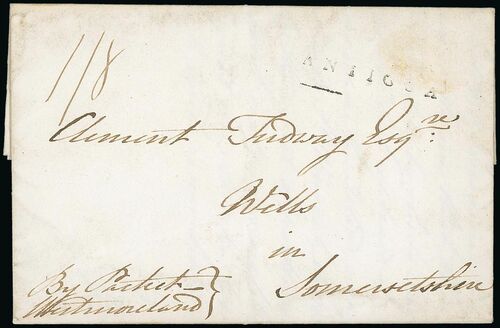 1/8
ANTIGUA
Clement Tudway Esqre:
Wells
in
Somersetshire
By Packet
Westmoreland